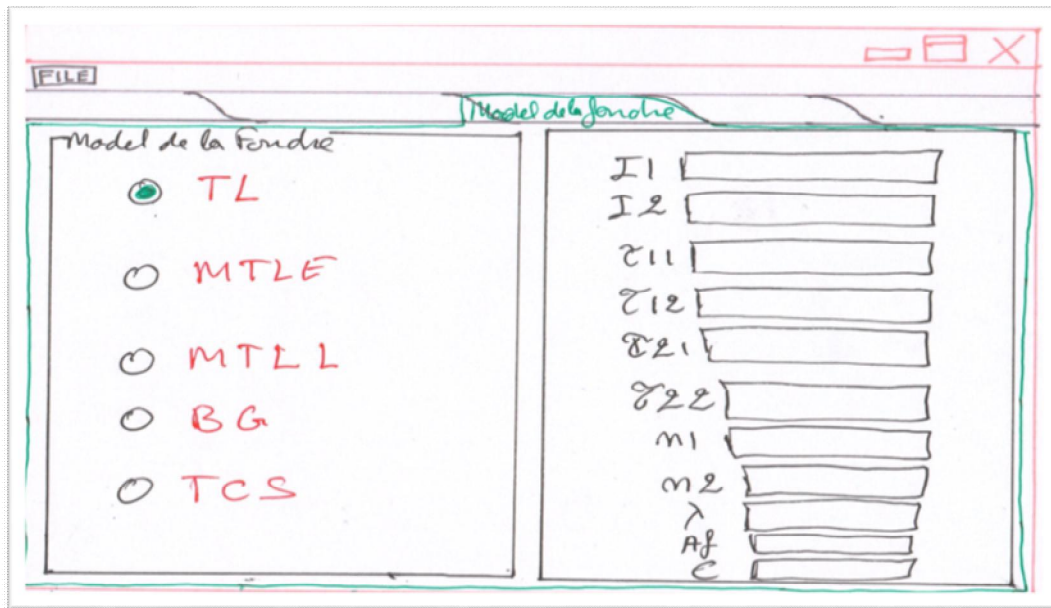 FILE
Model de la foudre
Model de la Foudre
TL
MTLE
MTLL
BG
TCS
I1
I2
τ11
τ12
τ21
τ22
n1
n2
λ
Af
C